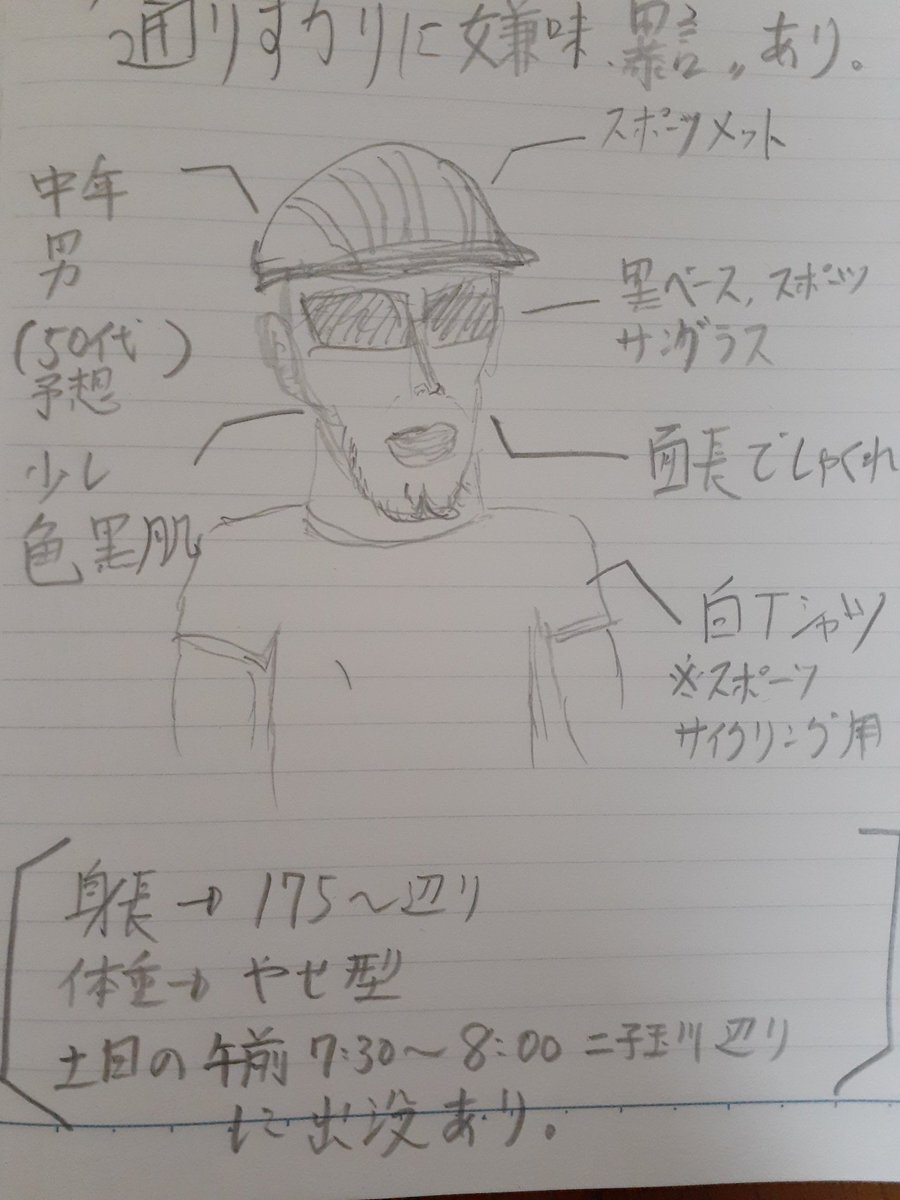 通りすがりに嫌味、暴言〃あり。
スポーツメット
中年
男
(50代
予想)
少し
色黒肌
黒ベース、スポーツ
サングラス
面長でしゃくれ
白Tシャツ
※スポーツ
サイクリング用
身長→175〜辺り
体重→やせ型
土日の午前7:30〜8:00二子玉川辺り
に出没あり。